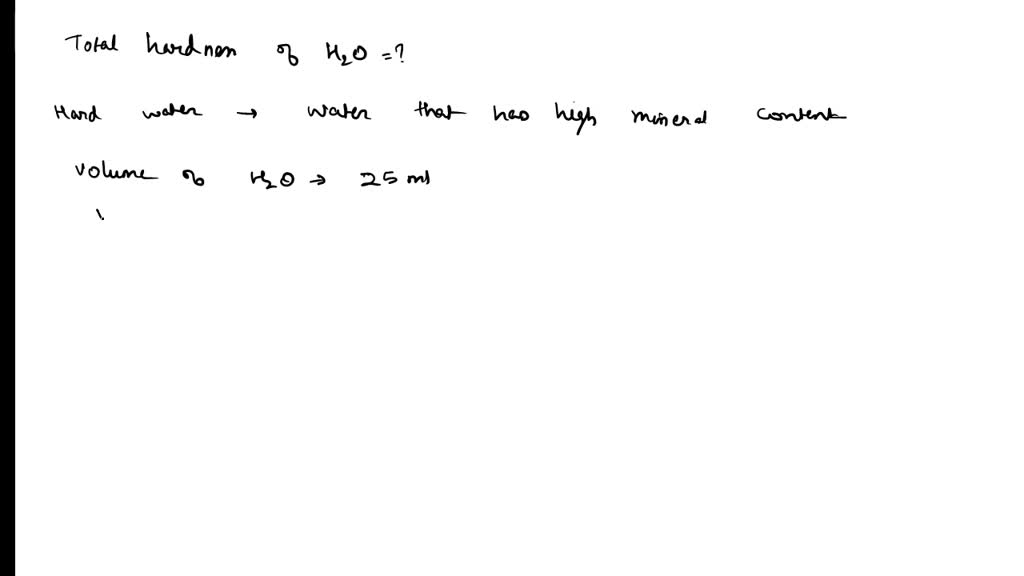 Total hardness of H₂O = ?
Hard water → water that has high mineral content
volume of H₂O → 25 ml